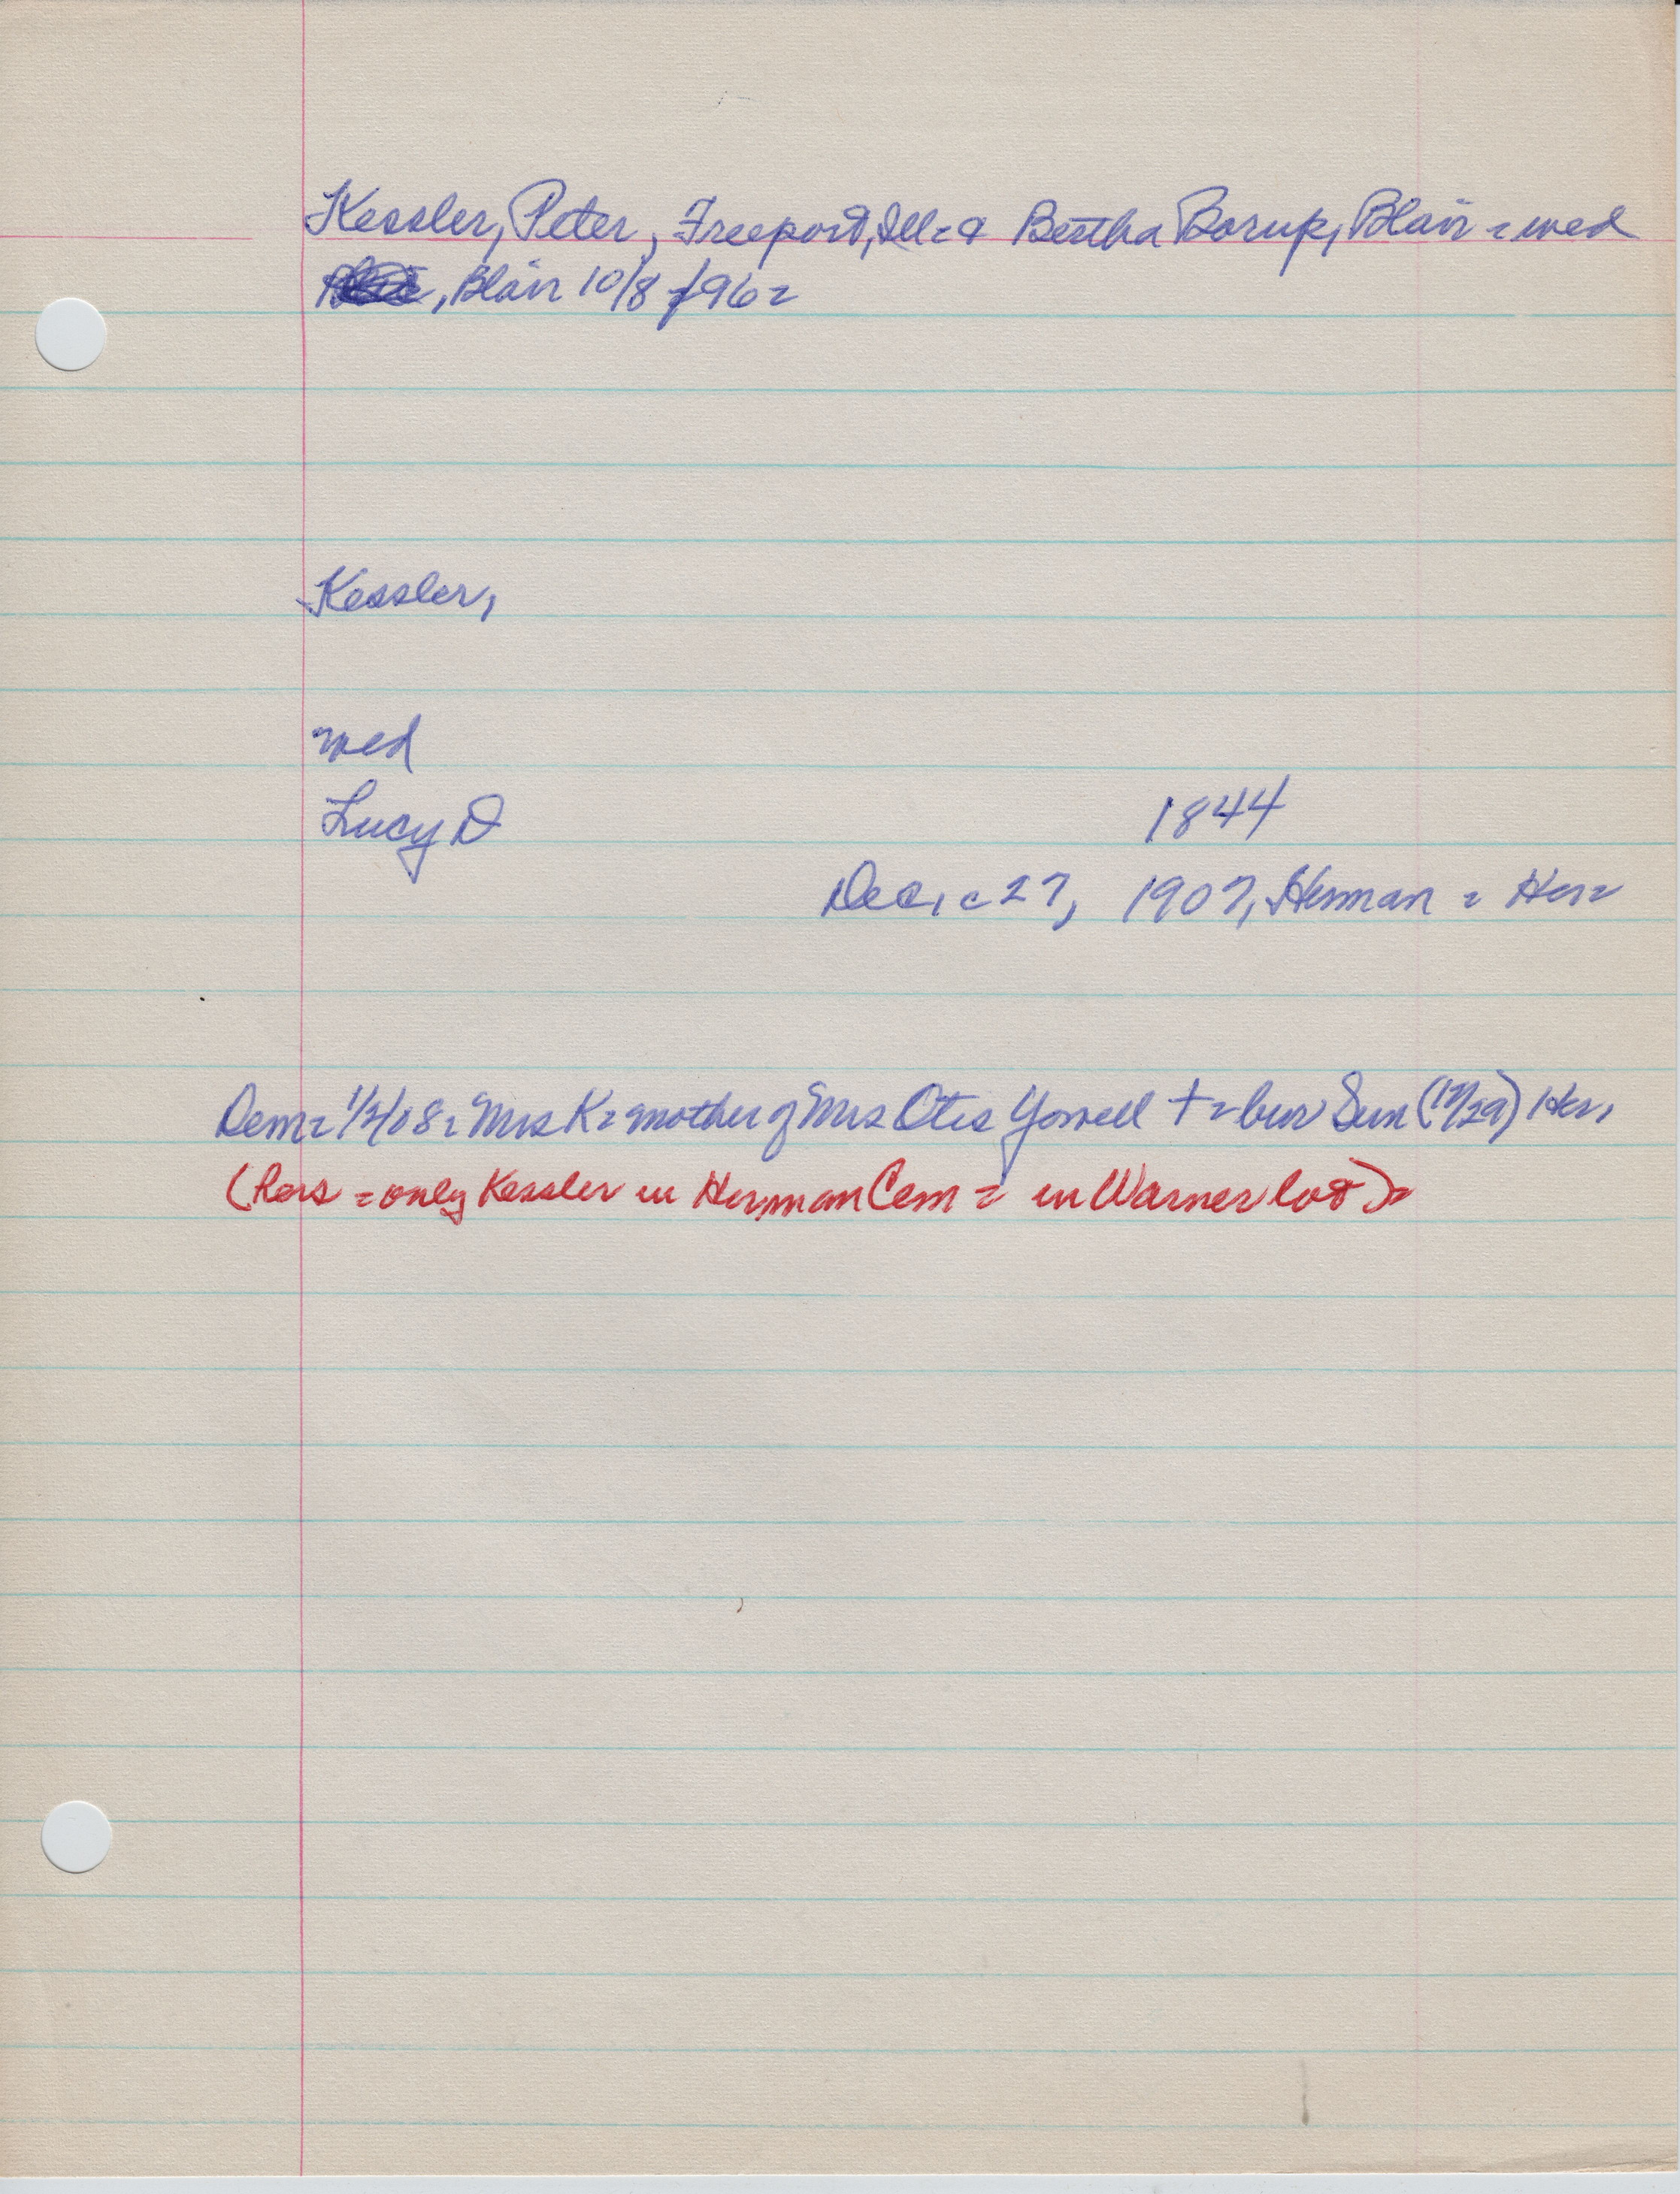 Kessler, Peter, Freeport, Ill = & Bertha Borup, Blair = wed
, Blair 10/8/96 =
Kessler,
wed
Lucy D
1844
Dec, c 27, 1907, Herman = Her =
Dem = 1/2/08 = Mrs K = mother of Mrs Otis Yowell † = bur Sun (12/29) Her,
(hers = only Kessler in Herman Cem = in Warner lot) =